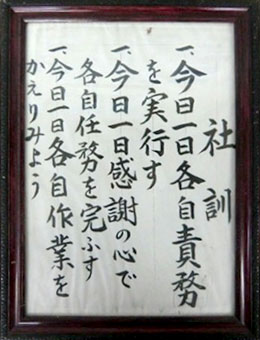 社訓
一、今日一日各自責務
を実行す
一、今日一日感謝の心で
各自任務を完ふす
一、今日一日各自作業を
かえりみよう